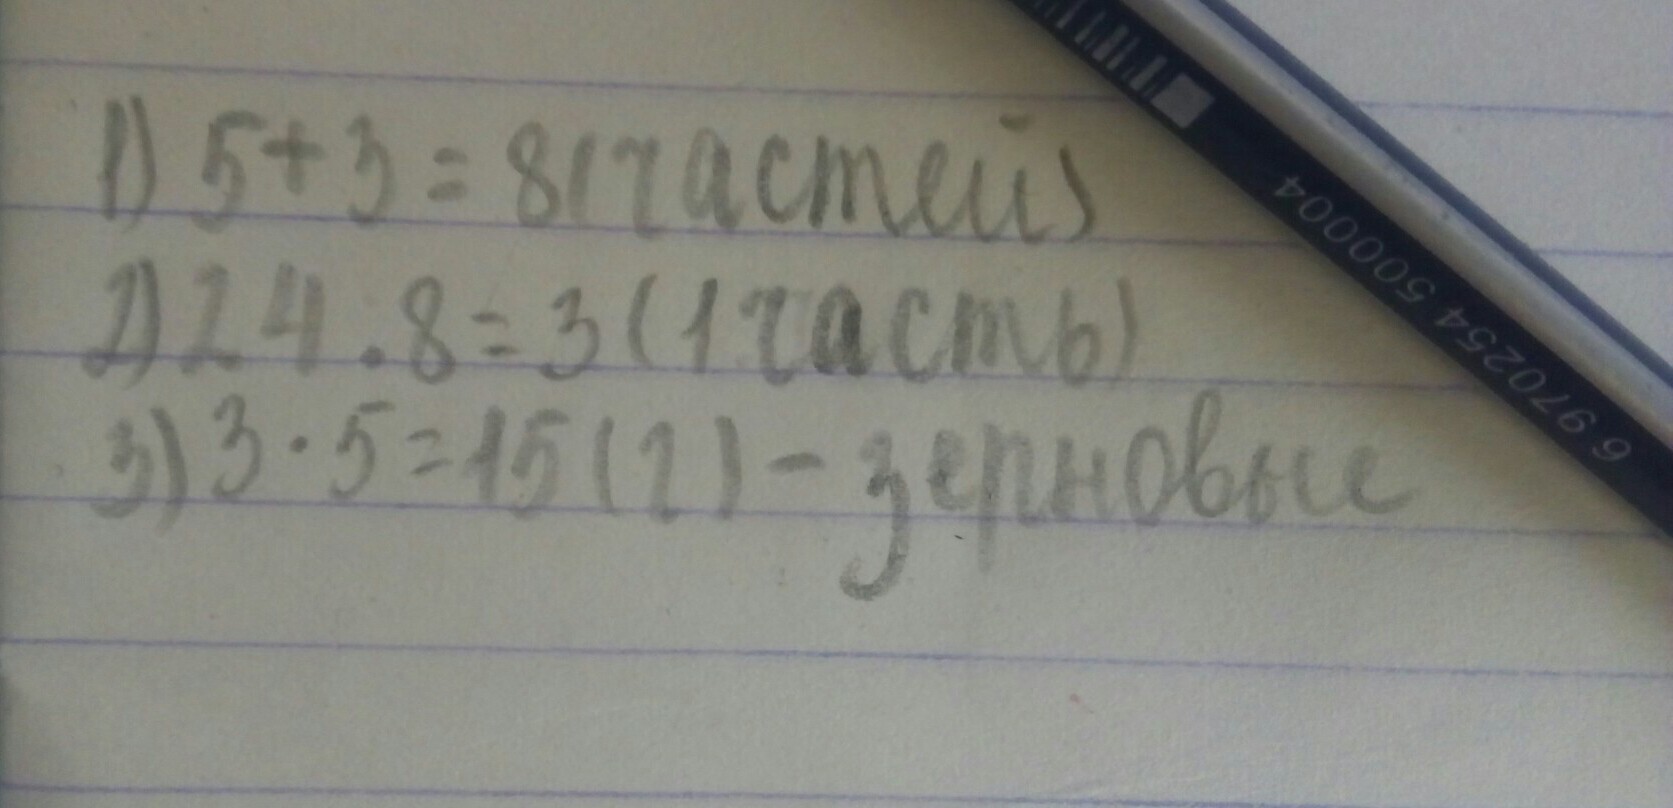 1) 5+3=8(частей)
2) 24.8=3(1 часть)
3) 3·5=15(г)-зерновые
6 970254 500004